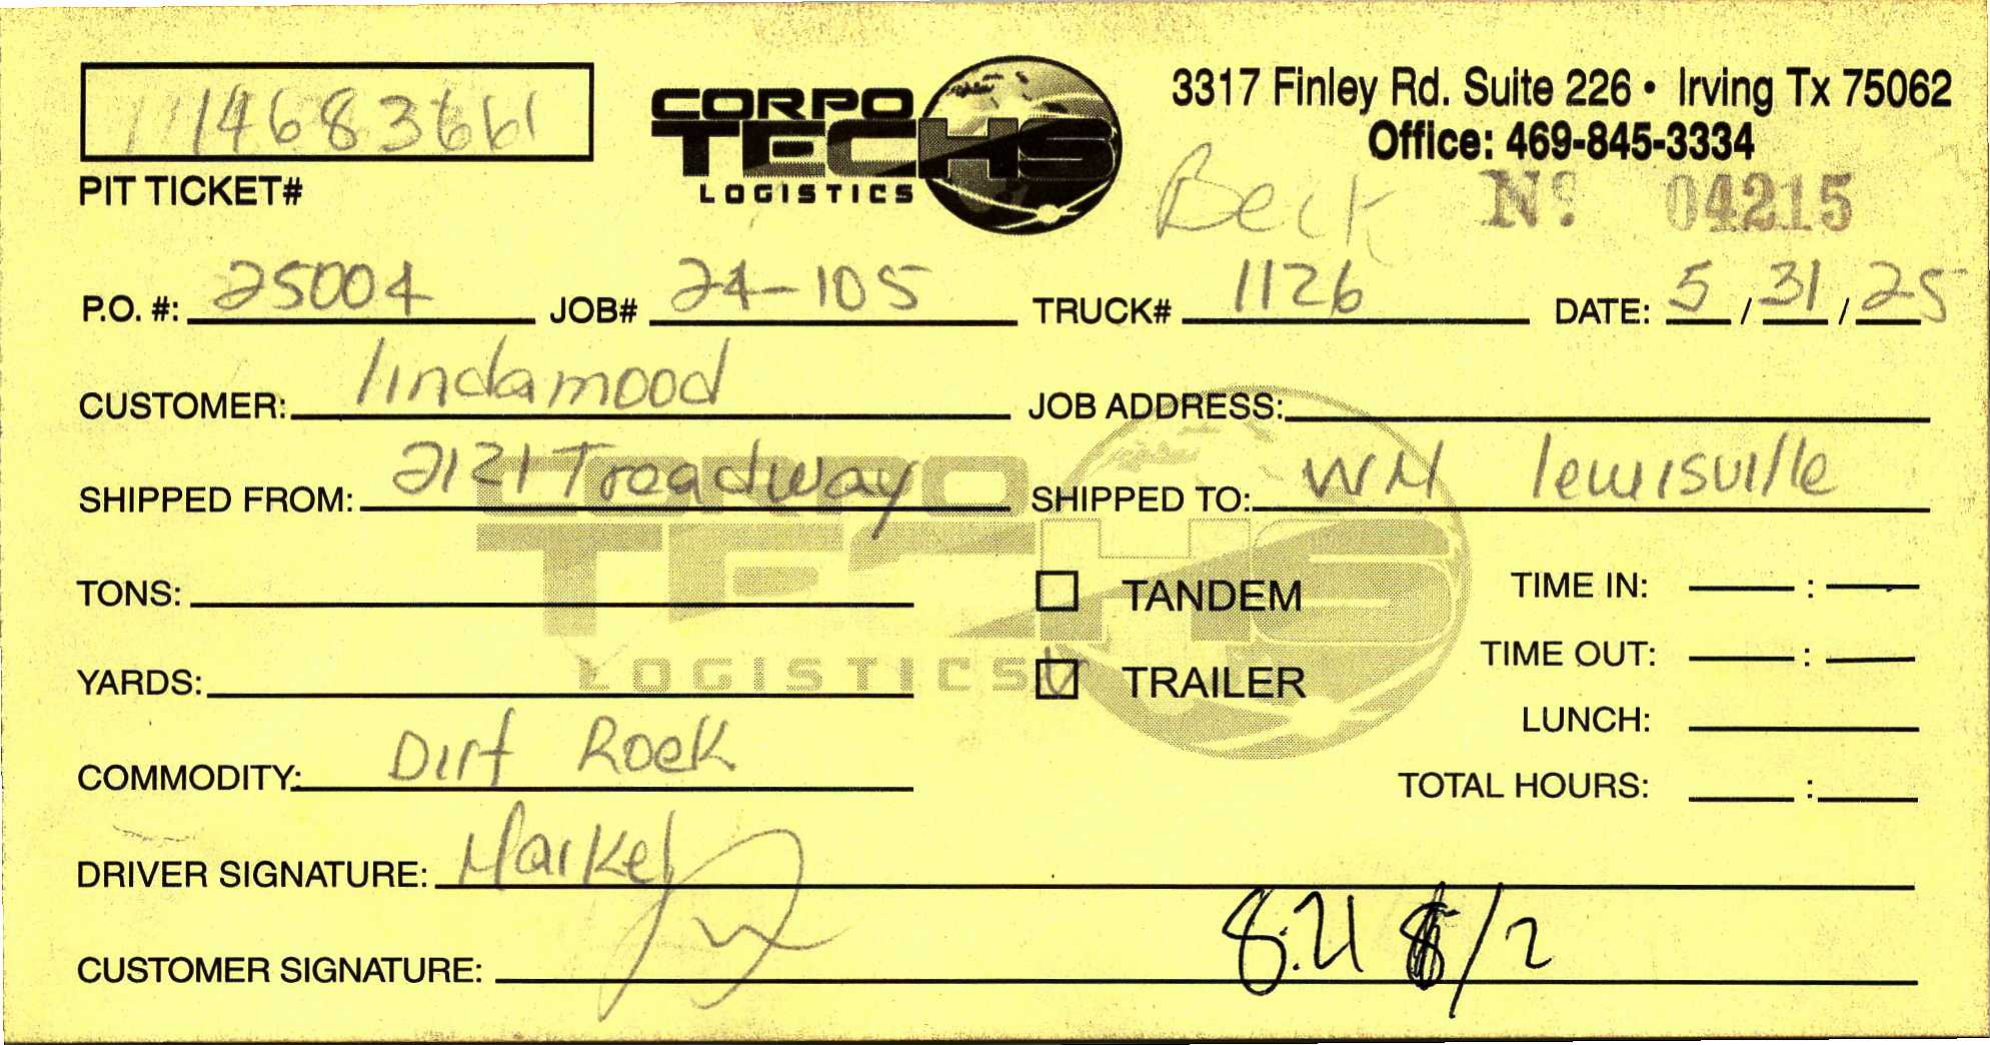 14683661
PIT TICKET#
CORPO
TECHS
LOGISTICS
3317 Finley Rd. Suite 226 • Irving Tx 75062
Office: 469-845-3334
Beck
Nº 04215
P.O. #: 25004 JOB# 24-105 TRUCK# 1126 DATE: 5/31/25
CUSTOMER: lindamood JOB ADDRESS:
SHIPPED FROM: 2121 Treadway SHIPPED TO: WM lewisville
TONS: TANDEM TIME IN: :
TIME OUT: :
YARDS: TRAILER
LUNCH:
COMMODITY: Dirt Rock TOTAL HOURS: :
DRIVER SIGNATURE: Markel
CUSTOMER SIGNATURE: 8:21 /2
CORPO
TECHS
LOGISTICS